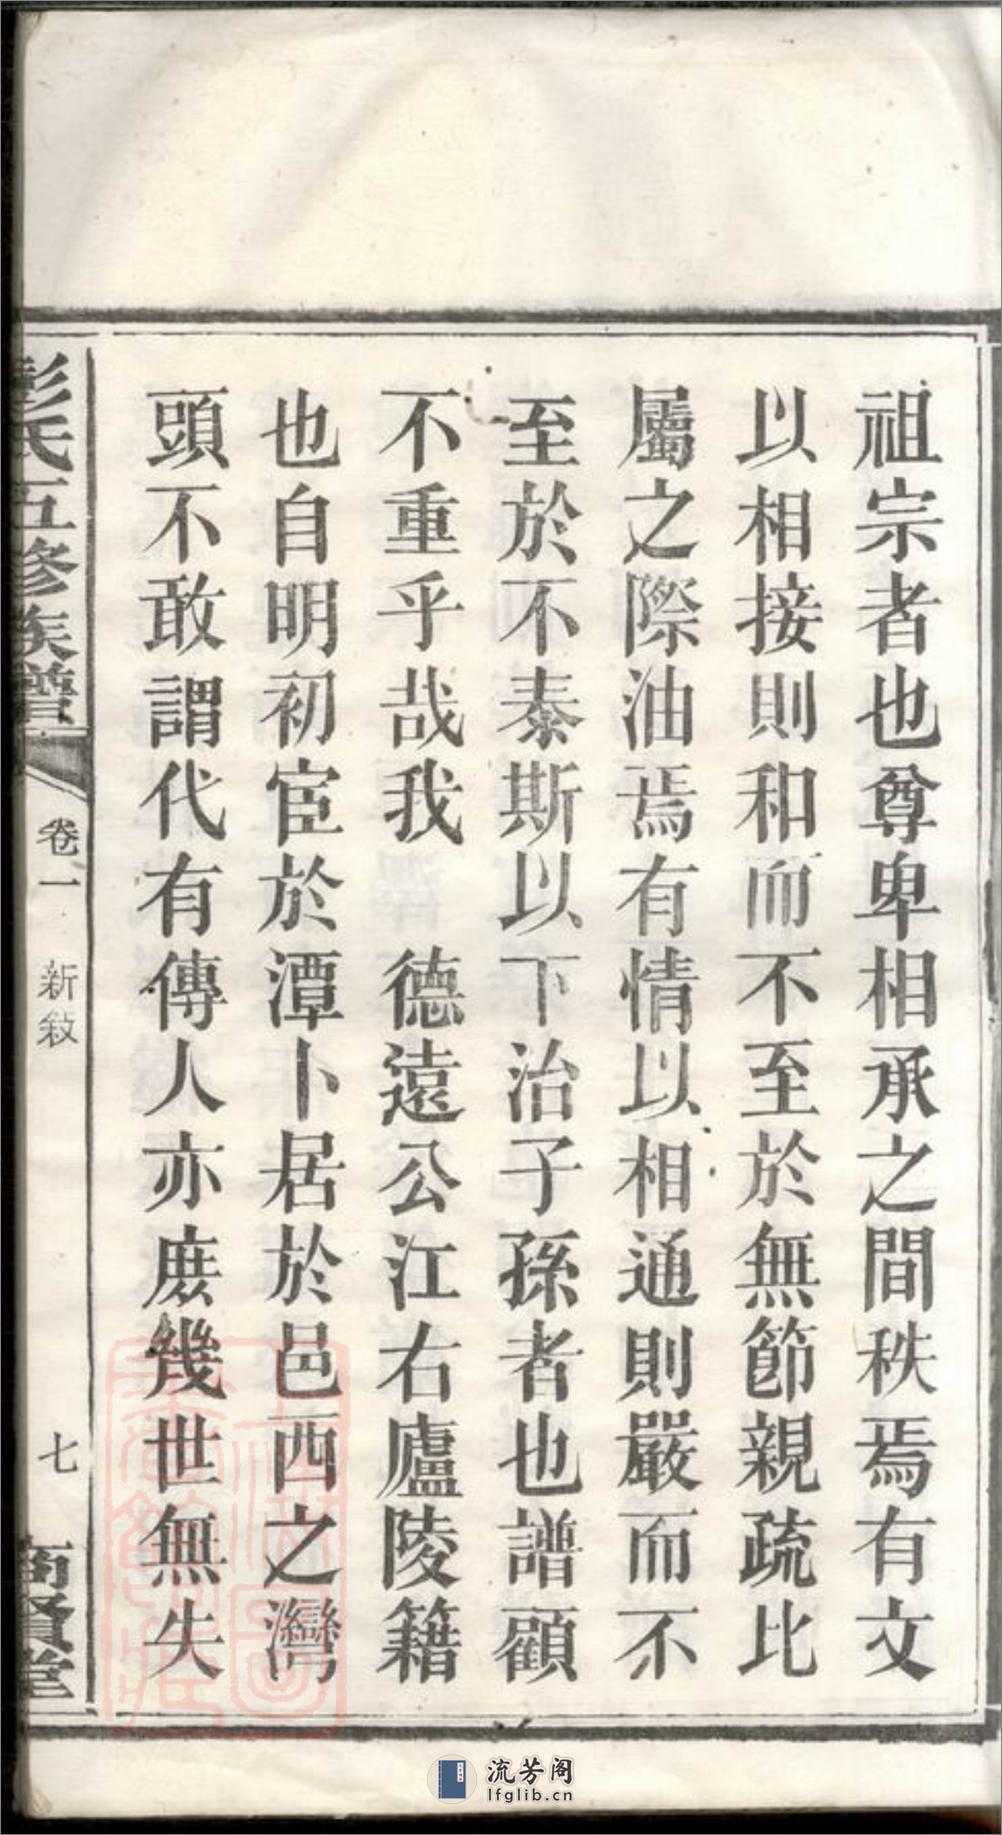 祖宗者也尊卑相承之間秩焉有文
以相接則和而不至於無節親疏比
屬之際油焉有情以相通則嚴而不
至於不泰斯以下治子孫者也譜顧
不重乎哉我　德遠公江右廬陵籍
也自明初宦於潭卜居於邑西之灣
頭不敢謂代有傳人亦庶幾世無失
彭氏五修族譜
卷一　新敘
七
商賢堂
流芳阁
lfglib.cn